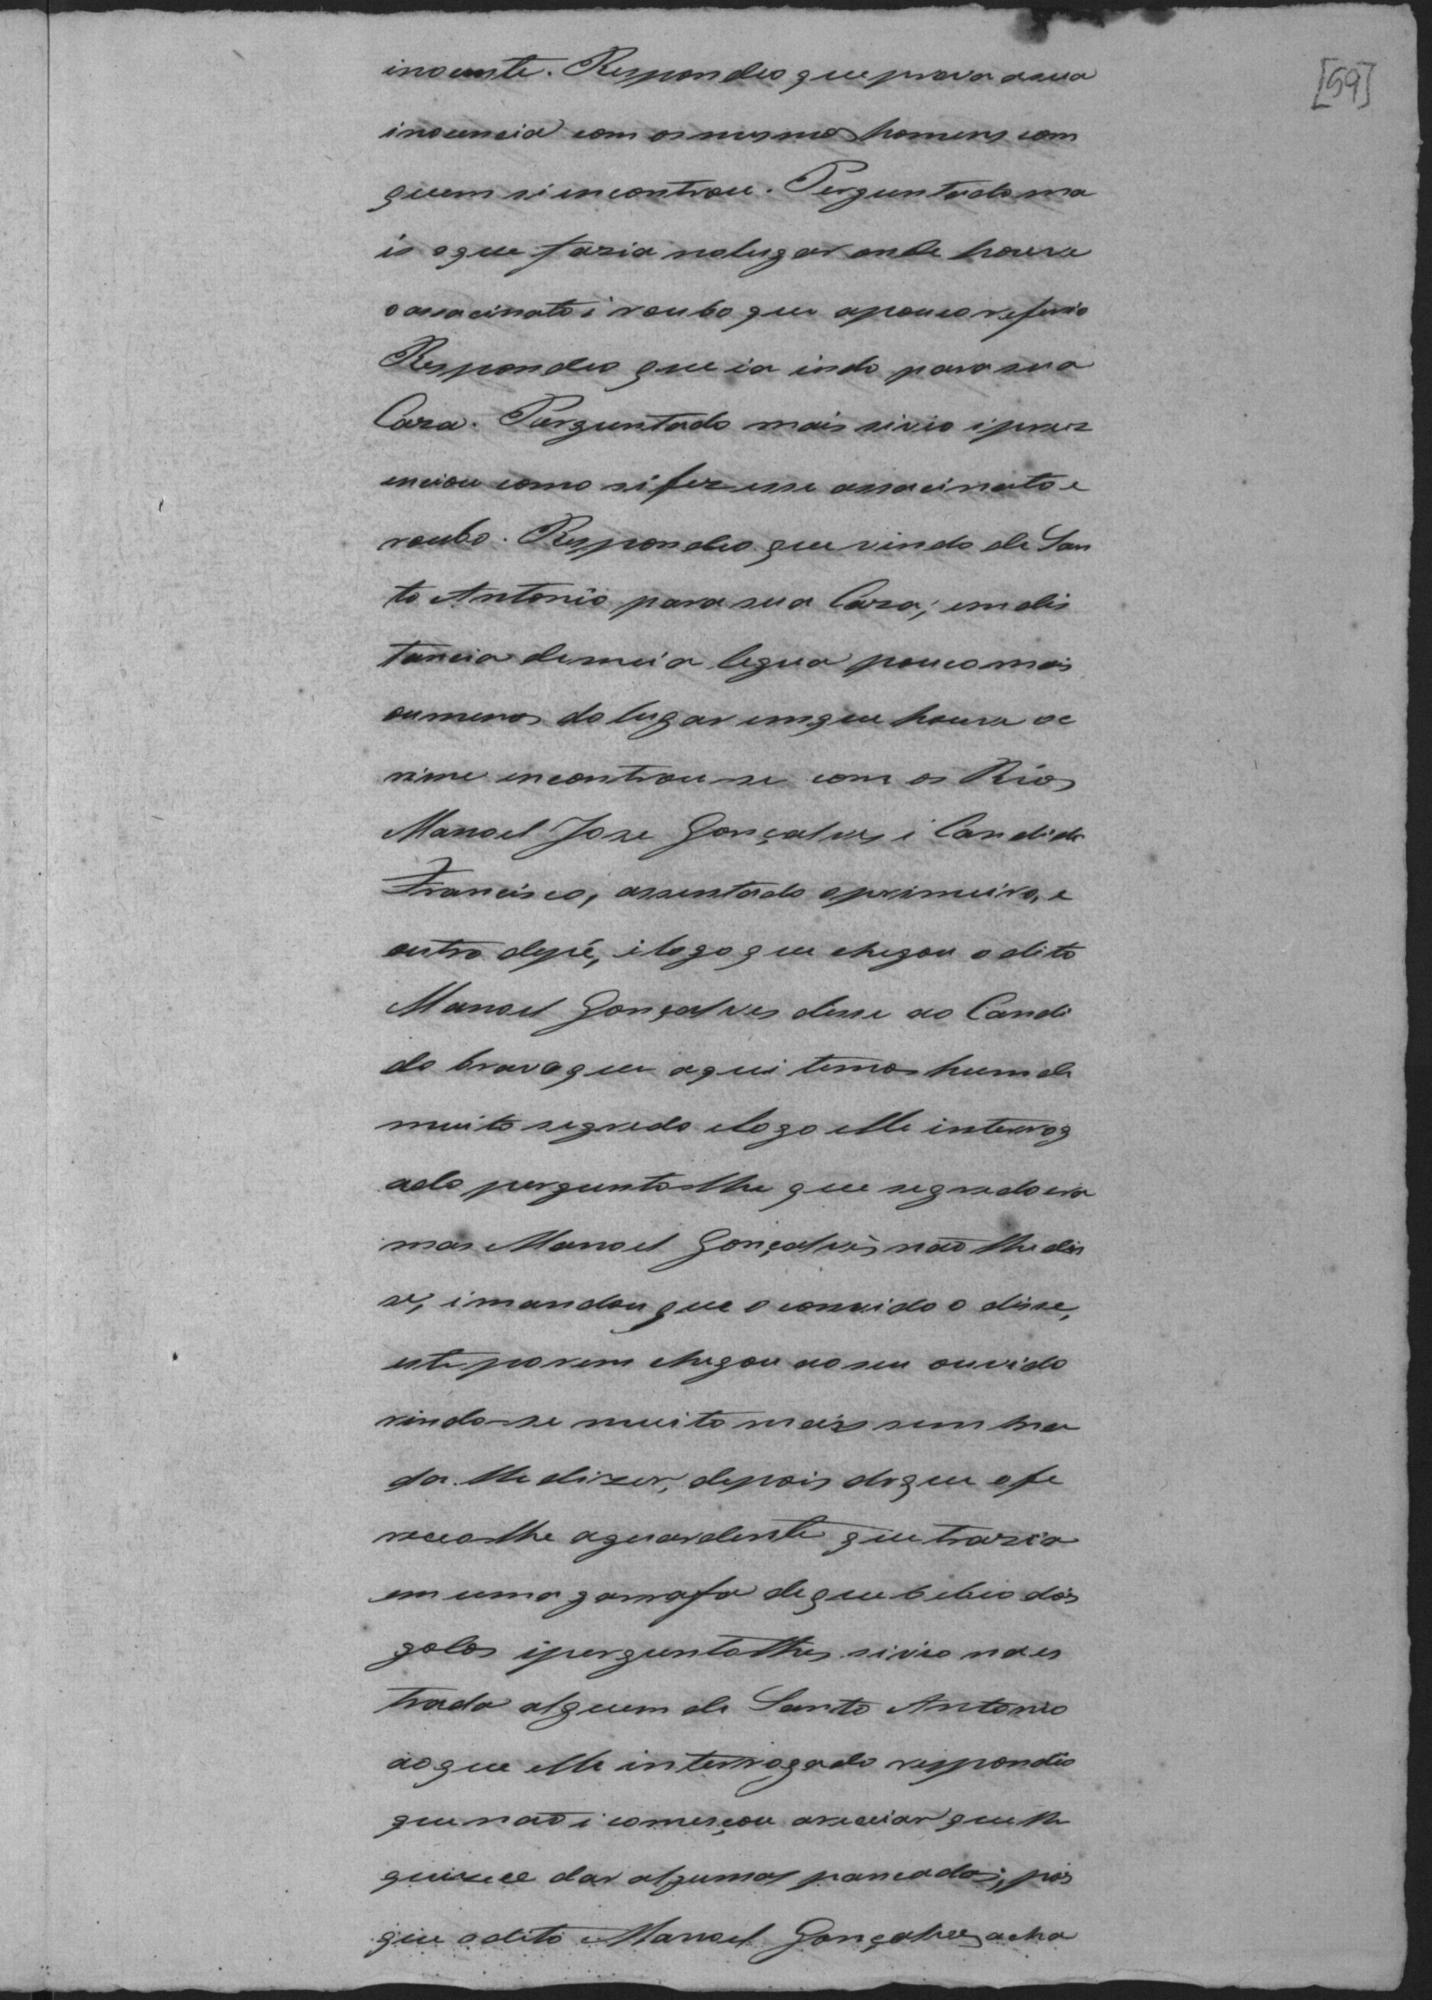 [59]
inocente. Respondeo que prova a sua
inocencia com os mesmos homens com
quem si incontrou. Perguntado ma
is o que fazia no lugar onde houve
o assacinato i roubo que a pouco referio
Respondeo que ia indo para sua
Caza. Perguntado mais si vio i prez
enciou como si fez esse assacinato e
roubo. Respondeo que vindo de San
to Antonio para sua Caza, em dis
tancia de meia legua pouco mais
ou menos do lugar em que houve oc
rime encontrou-se com os Rios
Manoel Joze Gonçalves i Candido
Francisco, assentado o primeiro, e
outro de pé, i logo que chegou o dito
Manoel Gonçalves disse ao Candi
do bravo que aqui temos hum de
muito segredo e logo elle interrog
ado perguntolhe que segredo era
mas Manoel Gonçalves não lhe dis
se, i mandou que o convido o disse,
este porem chegou ao seu ouvido
rindo-se muito mais sem na
da lhe dizer, depois do que ofe
receolhe aguardente que trazia
em uma garrafa de que bebeo dois
golos i perguntolhes si vio na es
trada alguem de Santo Antonio
ao que elle interrogado respondeo
que não i começou a receiar que lhe
quizece dar algumas pancadas, pois
que o dito Manoel Gonçalves acha